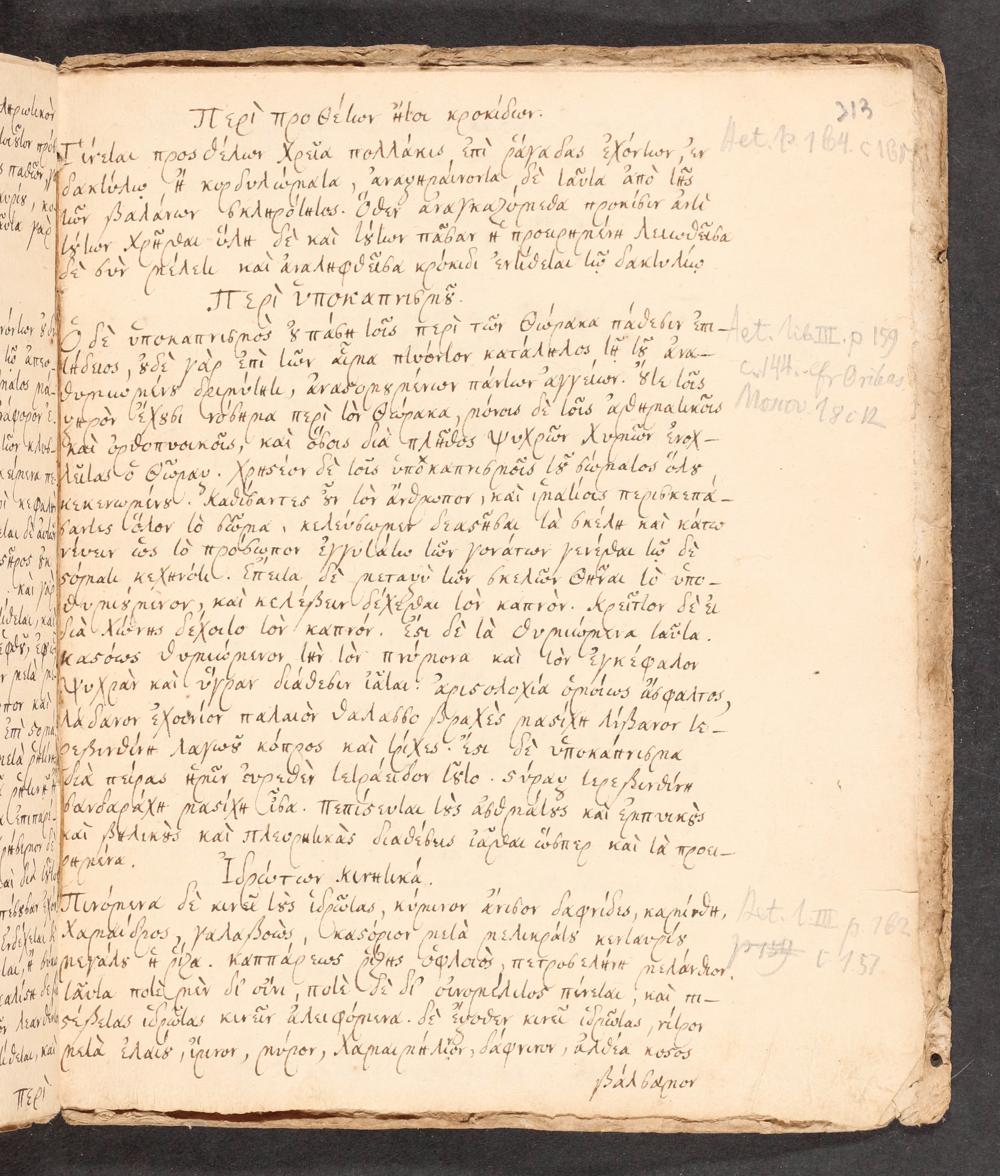 313
Περὶ προσθέτων ἤτοι κροκίδων.
Aet. p 164. c 161
Γίνεται προσθέτων χρεῖα πολλάκις ἐπὶ ῥάγαδας ἐχόντων, ἐν
δακτυλίῳ ἢ κονδυλώματα, ἀναξηραίνονται δὲ ταῦτα ἀπὸ τῆς
τῶν βαλάνων σκληρότητος. Ὅθεν ἀναγκαζόμεθα προκίσιν ἀντὶ
τούτων χρῆσθαι ὕλη δὲ καὶ τούτων πᾶσαν ἡ προειρημένη λειωθεῖσα
δὲ σὺν μέλιτι καὶ ἀναληφθεῖσα κρόκιδι ἐντίθεται τῷ δακτυλίῳ
Περὶ ὑποκαπνισμοῦ.
Aet. lib III. p 159
c. 144. cfr Oribas
Ὁ δὲ ὑποκαπνισμὸς οὐ πάση τοῖς περὶ τῶν θώρακα πάθεσιν ἐπι-
τήδειος, οὐδὲ γὰρ ἐπὶ τῶν αἷμα πτυόντον κατάληλος τῇ τοῦ ἀνα-
θυμιωμένου δριμύτητι, ἀναστομουμένων πάντων ἀγγείων. οὔτε τοῖς
ξηρὸν ἔχουσι νόσημα περὶ τὸν θώρακα, μόνοις δὲ τοῖς ἀσθματικοῖς
καὶ ὀρθοπνοικοῖς, καὶ ὅσοις διὰ πλῆθος ψυχρῶν χυμῶν ἐνοχ-
λεῖται ὁ θῶραξ. Χρηστέον δὲ τοῖς ὑποκαπνισμοῖς τοῦ σώματος ὅλου
κεκενωμένου. Καθίσαντες οὖν τὸν ἄνθρωπον, καὶ ἱματίοις περισκεπά-
σαντες ὅλον τὸ σῶμα, κελεύσωμεν διαστῆσαι τὰ σκέλη καὶ κάτω
νεύειν ὡς τὸ πρόσωπον ἐγγυτάτω τῶν γονάτων γενέσθαι τῷ δὲ
στόματι κεχηνότι. Ἔπειτα δὲ μεταξὺ τῶν σκελῶν θῆναι τὸ ὑπο-
θυμιώμενον, καὶ κελέυειν δέχεσθαι τὸν καπνὸν. Κρεῖττον δὲ εἰ
διὰ χώνης δέχοιτο τὸν καπνόν. Ἔστι δὲ τὰ θυμιώμενα ταῦτα.
καστόως θυμιώμενον τὴν τὸν πνύμονα καὶ τὸν ἐγκέφαλον
ψυχρὰν καὶ ὑγρὰν διάθεσιν ἰᾶται. ἀριστολοχία ὁμοίως ἄσφαλτος,
λάδανον ἐχοινίον παλαιὸν θαλασσο βραχὲς μαστίχη λίβανον τε-
ρεβινθίνη λαγωοῦ κόπρος καὶ τρίχες. Ἔστι δὲ ὑποκαπνισμα
διὰ πείρας ἡμῖν εὑρεθὲν τετράειδον τοῦτο. στύραξ τερεβινθίνη
σανδαράχη μαστίχη ἶσα. πεπίστευται τοὺς ἀσθματικοὺς καὶ ἐμπυικοὺς
καὶ βηλικοὺς καὶ πλευριτικὰς διαθέσεις ἰᾶσθαι ὥσπερ καὶ τὰ προει-
ρημένα.
Ἱδρώτων κινητικά.
Aet. l. III p 162
c 157
Πινόμενα δὲ κινεῖ τοὺς ἱδρῶτας, κύμινον ἄνισον δαφνίδες, καμίνθη,
χαμαίδρος, γαλαβοώς, καστόριον μετὰ μελικράτου κενταυρίου
μεγάλου ἡ ῥίζα. καππάρεως ῥίζης ὁ φλοιὸς, πετροσελίνη μελάνθιον.
ταῦτα ποτὲ μὲν δι' οἴνου, ποτὲ δὲ δι' οἰνομέλιτος πίνεται, καὶ πι-
στέβεται ἱδρῶτας κινεῖν ἀλειφόμενα. δὲ ἔξοθεν κινεῖ ἱδρῶτας, νίτρον
μετὰ ἐλαίου, ἴρινον, μύρον, χαμαιμήλιον, δάφνινον, ἀλθέα κοστος
βάλσαμον
Περὶ